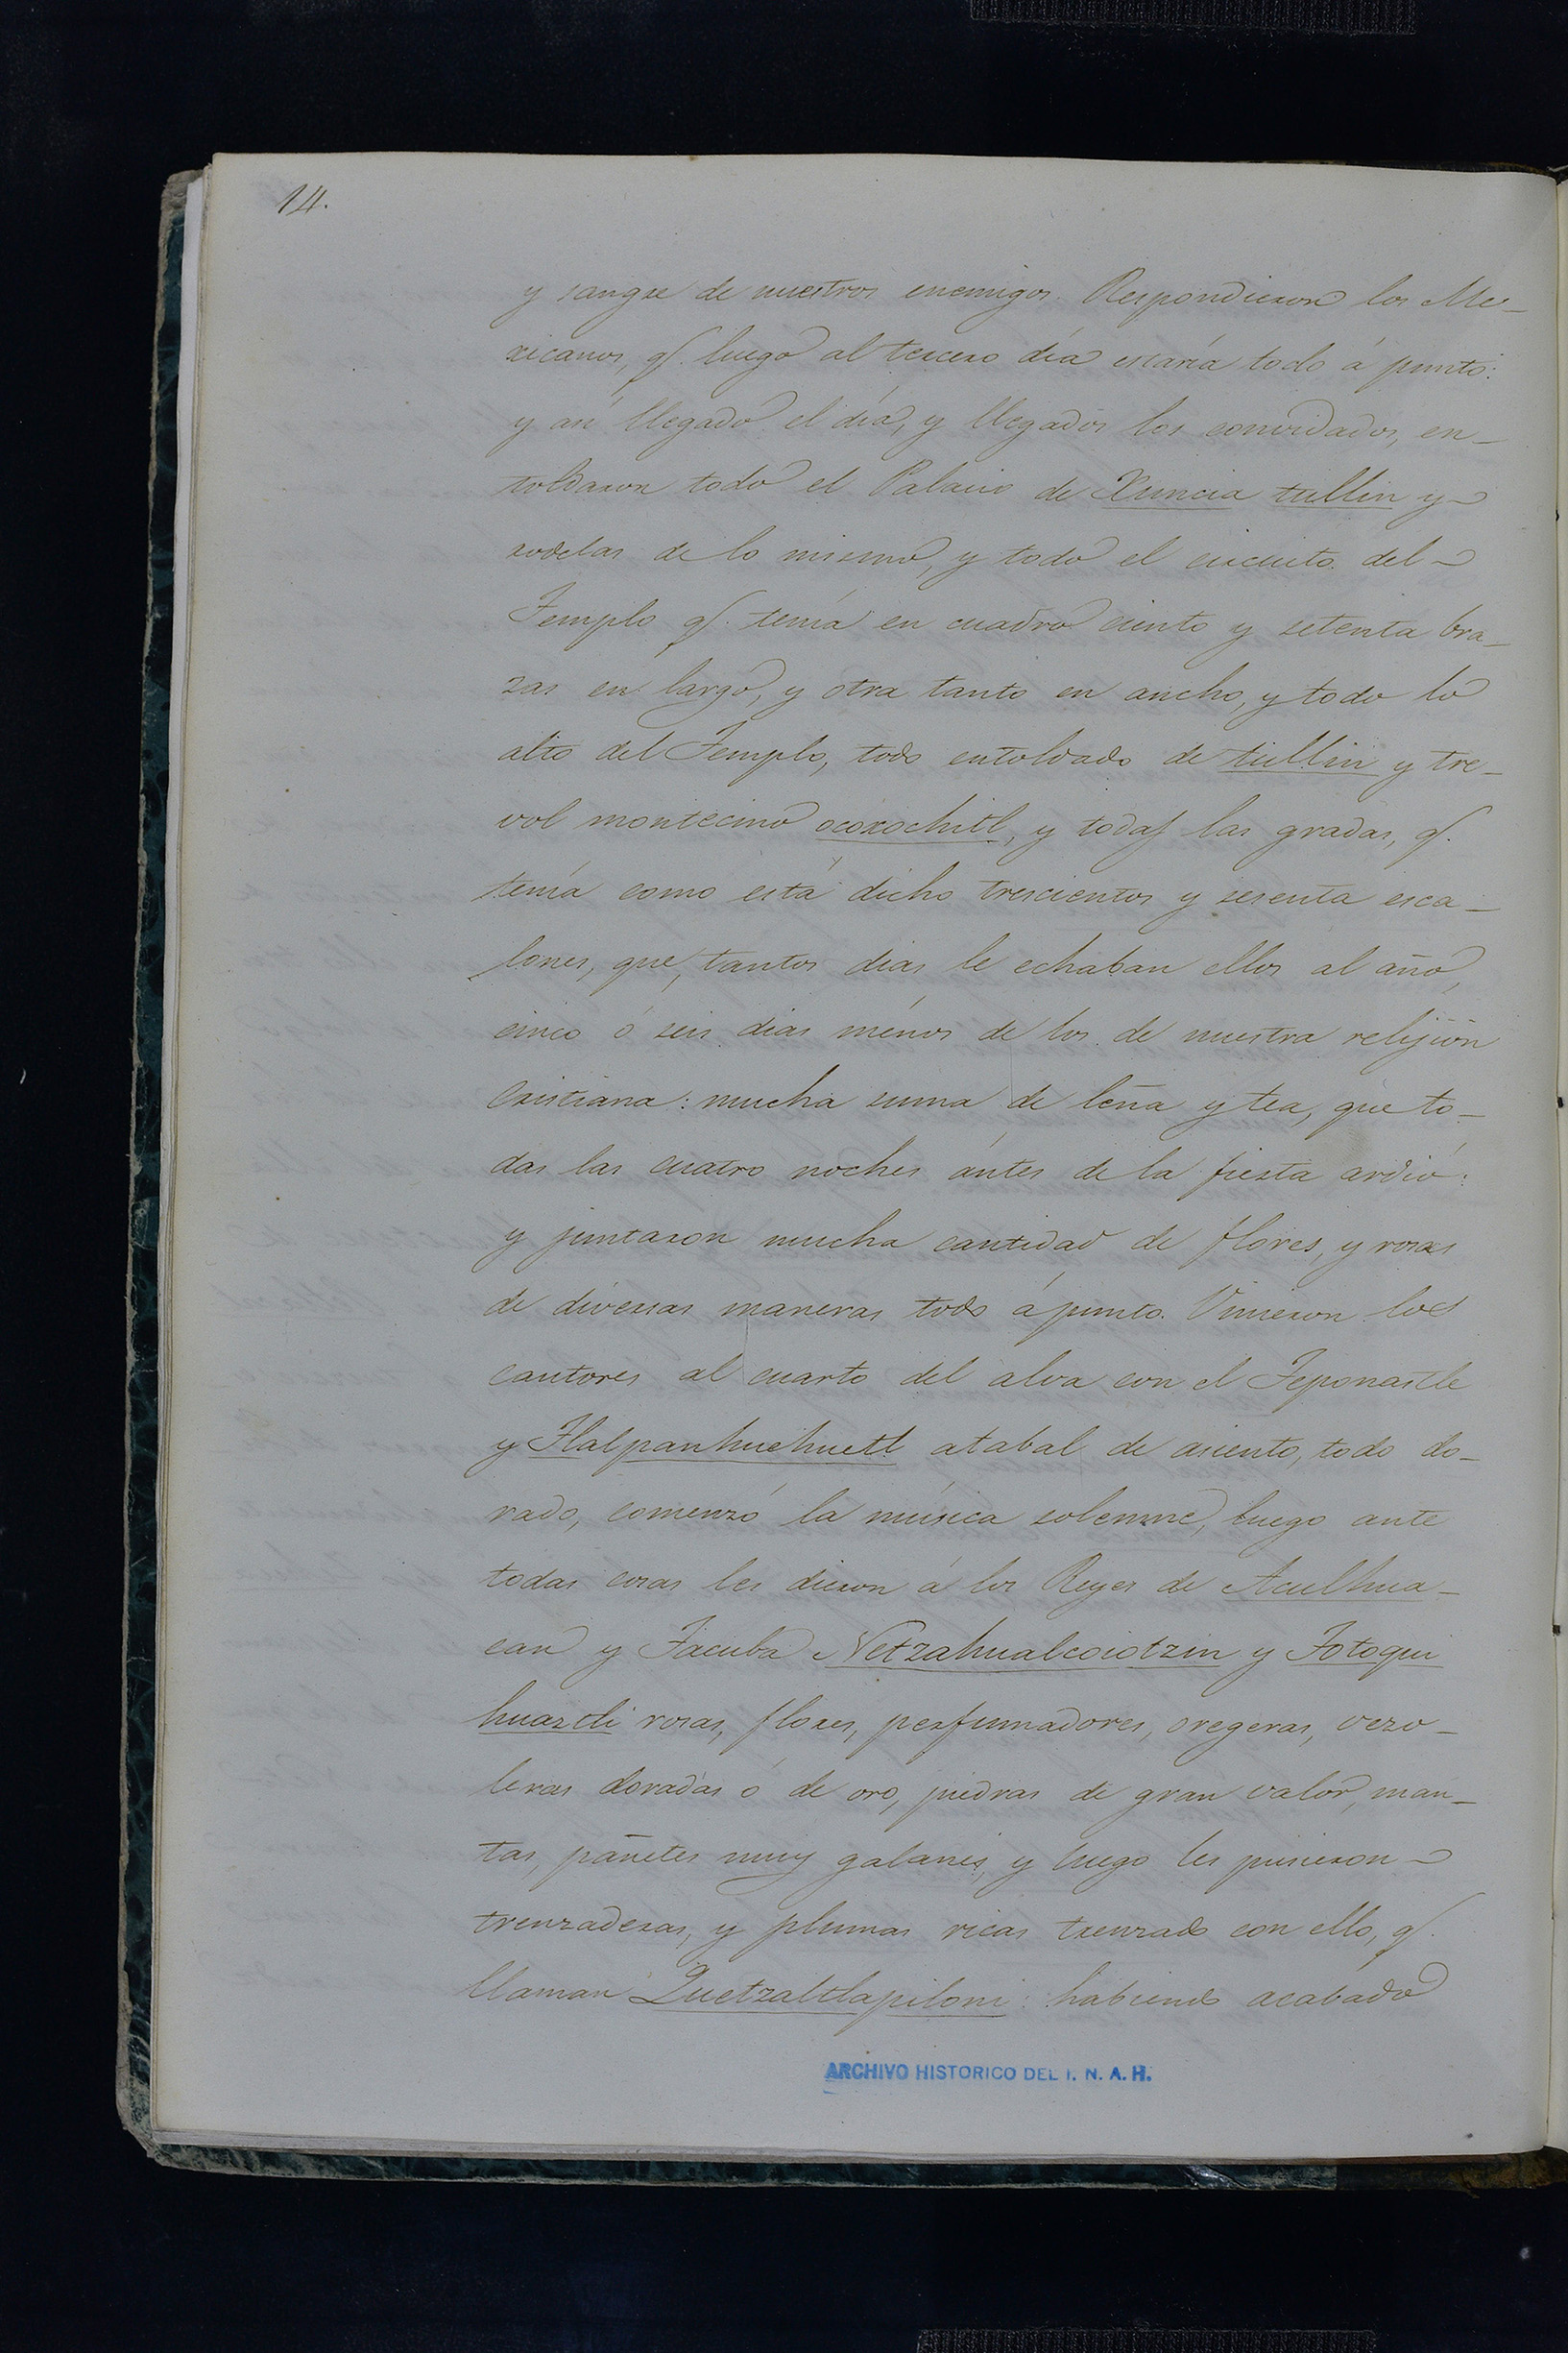 14.
y sangre de nuestros enemigos. Respondieron los Me-
xicanos, q. luego al tercero día estaría todo á punto:
y así llegado el día, y llegados los convidados, en-
toldaron todo el Palacio de Xuncia tullin y
rodelas de lo mismo, y todo el circuito del
Templo q. tenía en cuadro ciento y setenta bra-
zas en largo, y otra tanto en ancho, y todo lo
alto del Templo, todo entoldado de tullin y tre-
vol montecino ocoxochitl, y todas las gradas, q.
tenía como está dicho trescientos y sesenta esca-
lones, que tantos dias le echaban ellos al año,
cinco ó seis dias ménos de los de nuestra relijion
Cristiana: mucha suma de leña y tea, que to-
das las cuatro noches ántes de la fiesta ardió:
y juntaron mucha cantidad de flores, y rosas
de diversas maneras todo á punto. Vinieron los
cantores al cuarto del alva con el Teponastle
y Tlalpanhuehuetl atabal de asiento, todo do-
rado, comenzó la música solemne, luego ante
todas cosas les dieron á los Reyes de Aculhua-
can y Tacuba Netzahualcoiotzin y Totoqui
huaztli rosas, flores, perfumadores, oregeras, vezo-
leras doradas ó de oro, piedras de gran valor, man-
tas, pañetes muy galanes, y luego les pusieron
trenzaderas, y plumas ricas trenzado con ello, q.
llaman Quetzaltlapiloni: habiendo acabado
ARCHIVO HISTORICO DEL I. N. A. H.